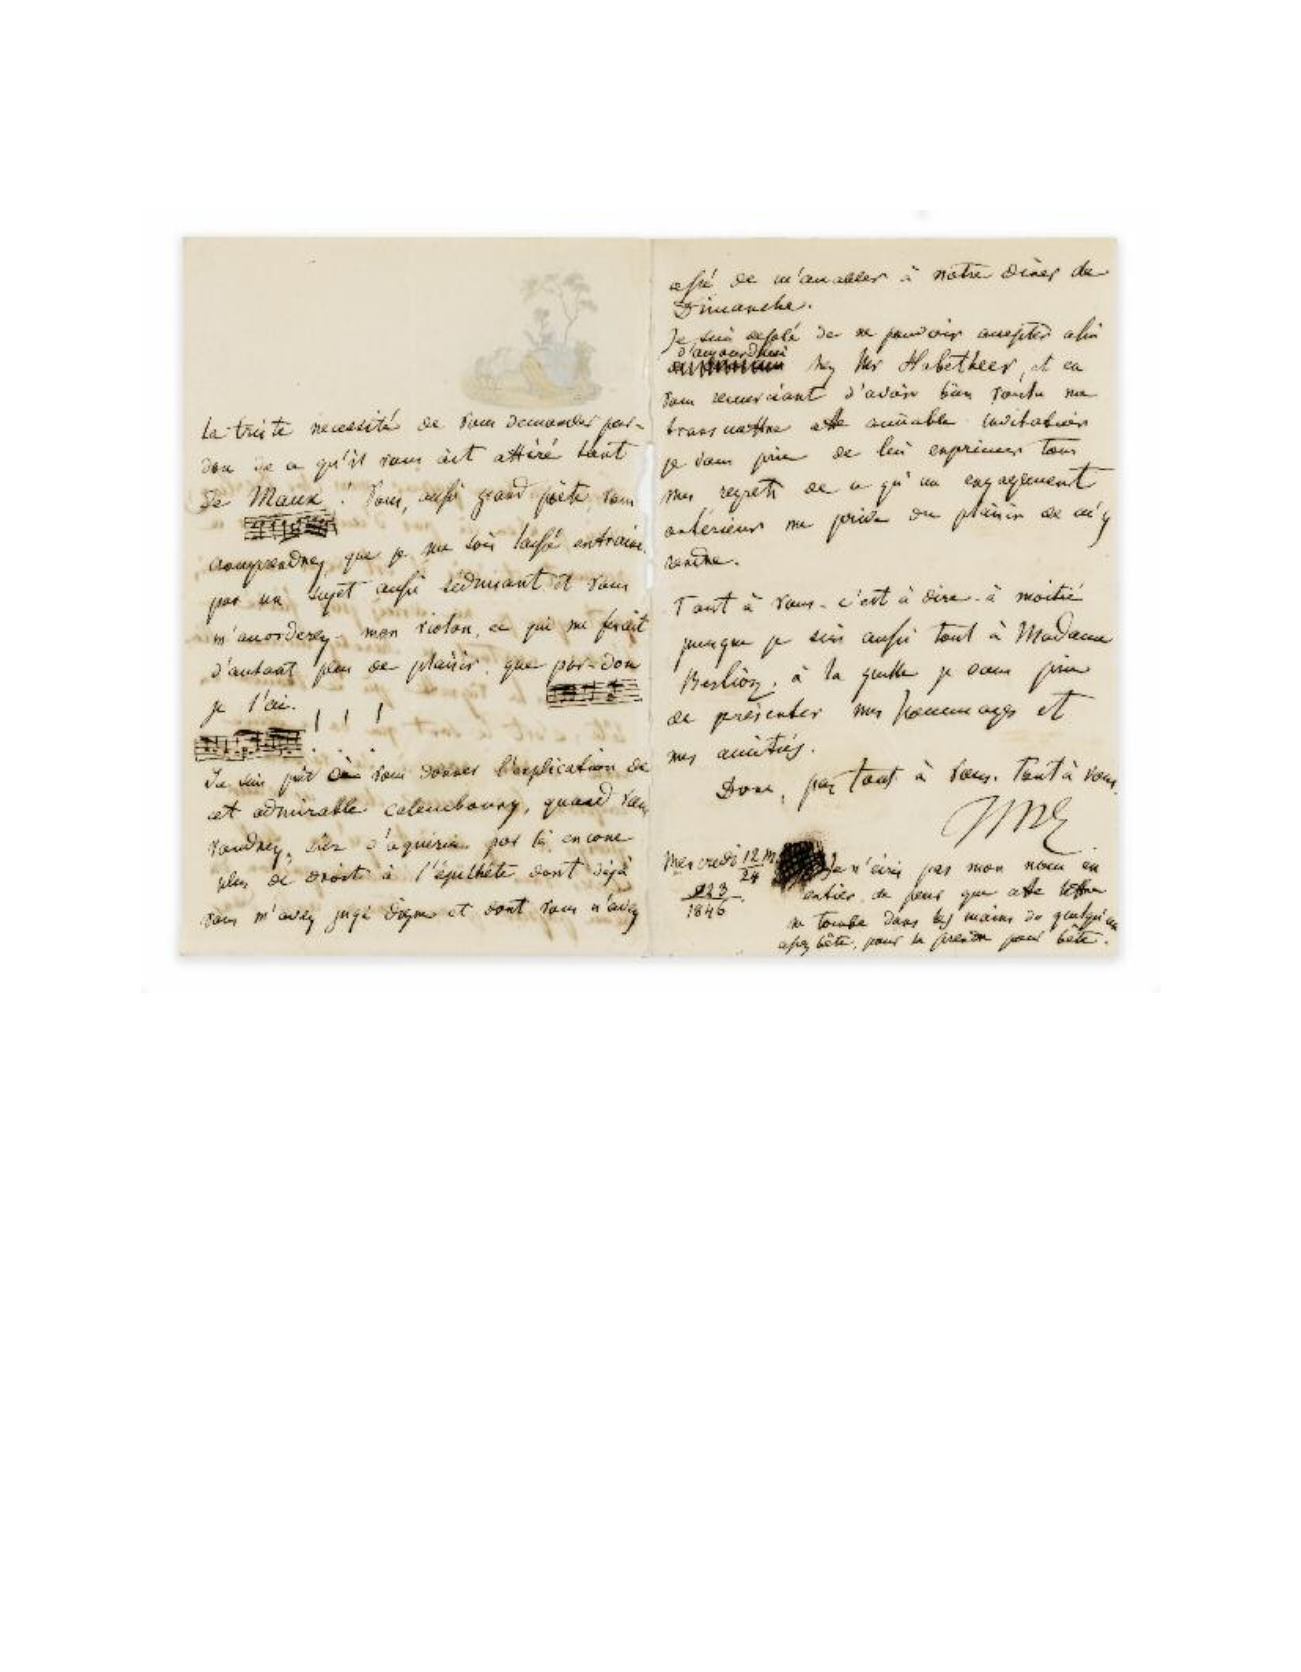 La triste nécessité de vous demander par-
don de ce qu'il vous ait attiré tant
de Maux ! Vous, aussi grand poëte, vous
comprendrez que je me sois laissé entrainé
par un sujet aussi séduisant et vous
m'accorderez mon violon, ce qui me ferait
d'autant plus de plaisir, que par-don
je l'ai.
! ! !
Je suis prêt à vous donner l'explication de
cet admirable calembourg, quand vous
voudrez, sûr d'aquérir par là encore
plus de droit à l'épithète dont déjà
vous m'avez jugé digne et dont vous n'avez
cessé de m'accabler à notre dîner de
Dimanche.
Je suis désolé de ne pouvoir accepter celui
d'aujourd'hui
chez Mr Habetheer, et en
vous remerciant d'avoir bien voulu me
transmettre cette aimable invitation
je vous prie de leur exprimer tous
mes regrets de ce qu'un engagement
antérieur me prive du plaisir de m'y
rendre.
Tout à vous - c'est à dire - à moitié
puisque je suis aussi tout à Madame
Berlioz, à la quelle je vous prie
de présenter mes hommages et
mes amitiés.
Donc, pas tout à vous. Tout à vous.
Mercredi 12 M
24
223
1846
Je n'écris pas mon nom en
entier, de peur que cette lettre
ne tombe dans les mains de quelqu'un
assez bête, pour la prendre pour bête.